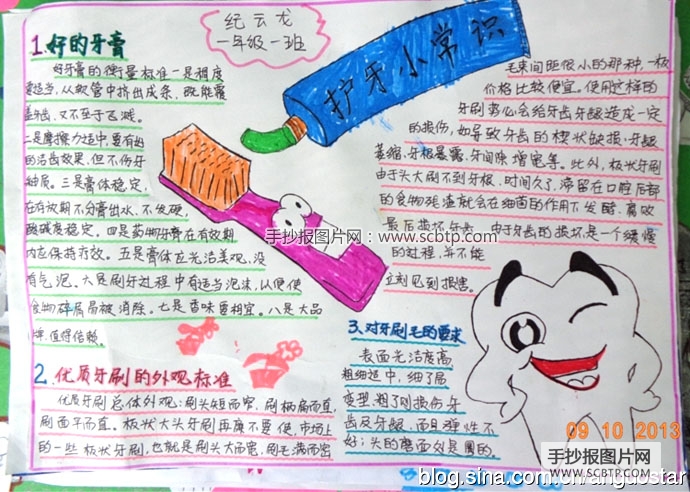 纪云龙
一年级一班
护牙小常识
1.好的牙膏
好牙膏的衡量标准一是稠度
要适当，从软管中挤出成条，既能覆
盖牙齿，又不至于飞溅。
二是摩擦力适中，要有好
的洁齿效果，但不伤牙
釉质。三是膏体稳定，
在存放期不分膏出水，不发硬，
酸碱度稳定。四是药物牙膏在有效期
内应保持疗效。五是膏体应光洁美观，没
有气泡。六是刷牙过程中有适当泡沫，以便使
食物碎屑易被消除。七是香味要相宜。八是大品
牌值得信赖。
2.优质牙刷的外观标准
优质牙刷总体外观：刷头短而窄，刷柄扁而直，
刷面平而直。板状大头牙刷再康不要使，市场上
的一些板状牙刷，也就是刷头大而宽，刷毛满而密
毛束间距很小的那种，一般
价格比较便宜。使用这样的
牙刷势必会给牙齿牙龈造成一定
的损伤，如导致牙齿的楔状缺损、牙龈
萎缩、牙根暴露、牙间隙增宽等。此外，板状牙刷
由于头大刷不到牙根，时间久了，滞留在口腔后部
的食物残渣就会在细菌的作用下发酵、腐败
最后损坏牙齿。由于牙齿的损坏是一个缓慢
的过程，并不能
立刻见到损害。
3、对牙刷毛的要求
表面光洁度高
粗细适中，细了易
变型，粗了则损伤牙
齿及牙龈，而且弹性不
好；头的磨面必是圆的。
手抄报图片网：www.scbtp.com
09 10 2013
手抄报图片网
WWW.SCBTP.COM
blog.sina.com.cn/anguostar